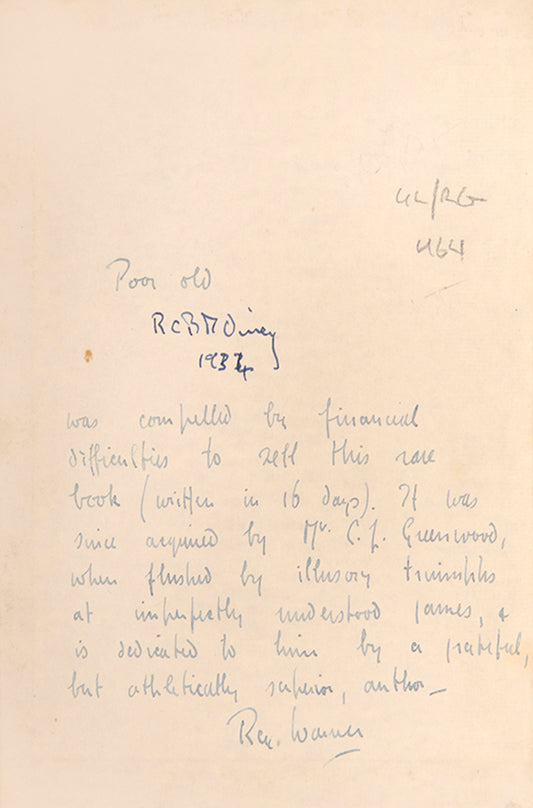 464
Poor old
1934
was compelled by financial
difficulties to sell this rare
book (written in 16 days). It was
since acquired by Mr. C. J. Greenwood,
when flushed by illusory triumphs
at imperfectly understood games, &
is dedicated to him by a grateful,
but athletically superior, author –
Rex. Warner